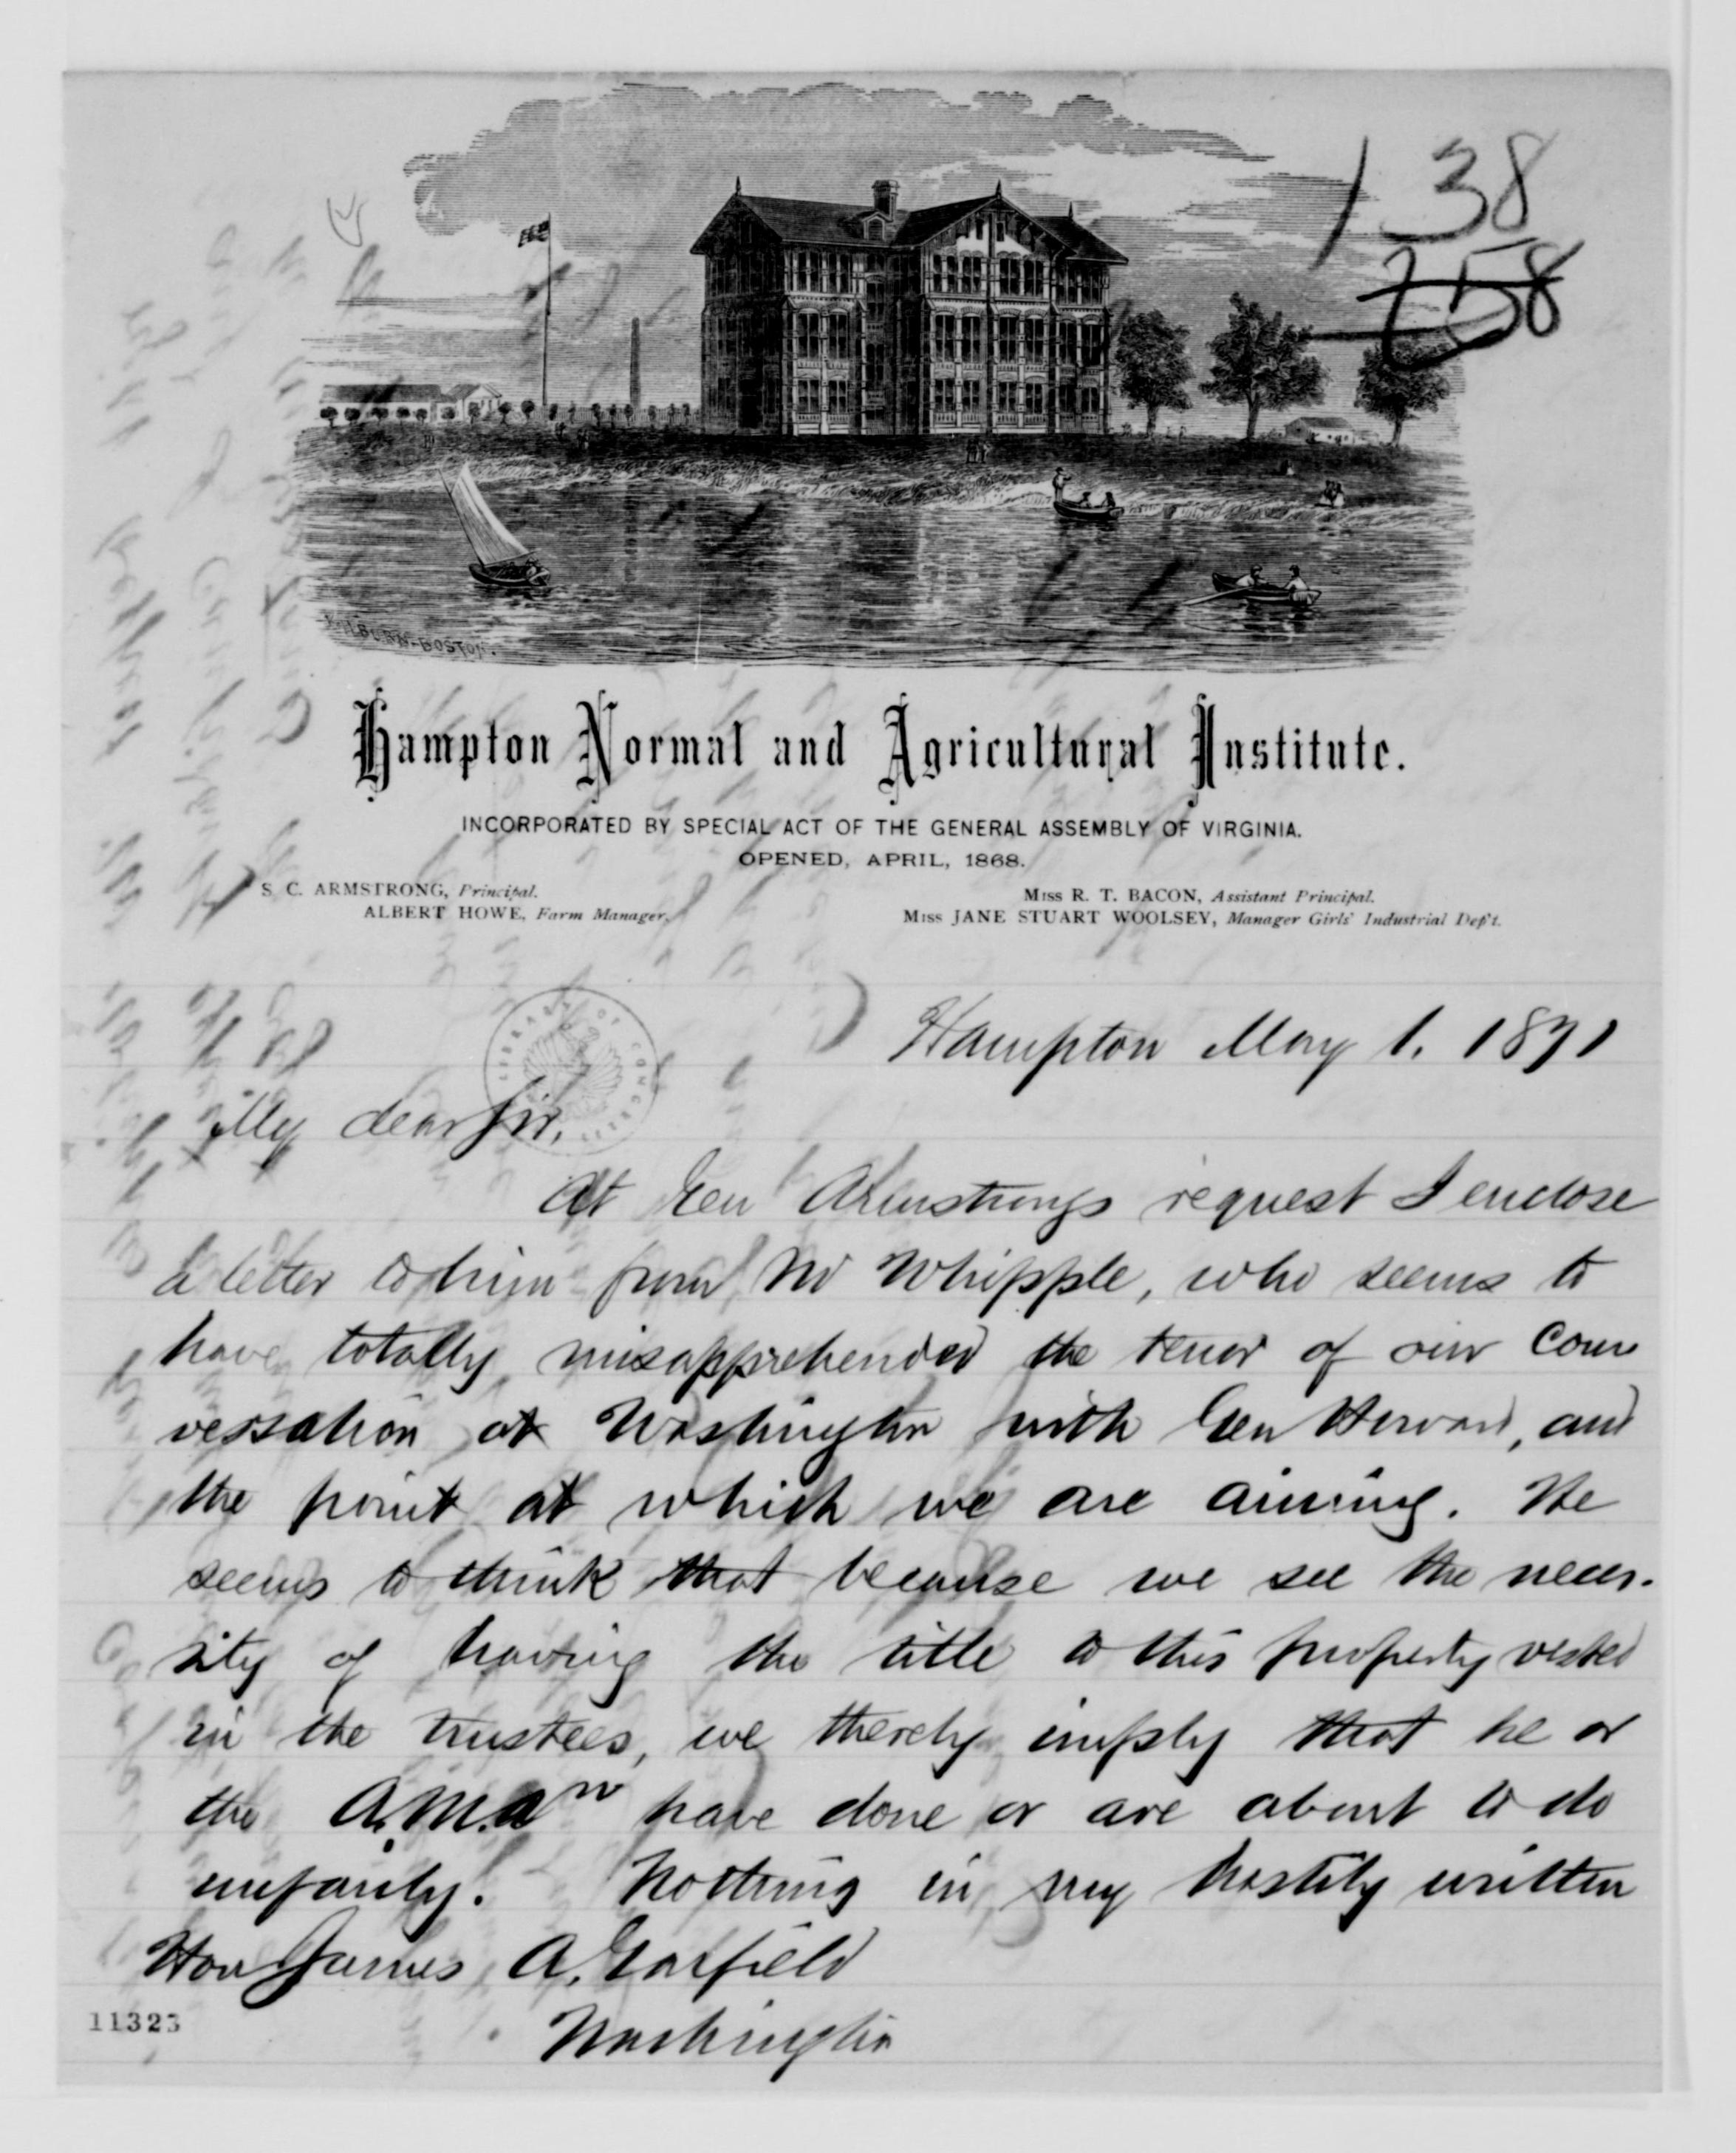 138
258
KILBURN-BOSTON.
Hampton Normal and Agricultural Institute.
INCORPORATED BY SPECIAL ACT OF THE GENERAL ASSEMBLY OF VIRGINIA.
OPENED, APRIL, 1868.
S. C. ARMSTRONG, Principal.
ALBERT HOWE, Farm Manager.
Miss R. T. BACON, Assistant Principal.
Miss JANE STUART WOOLSEY, Manager Girls' Industrial Dep't.
LIBRARY OF CONGRESS
Hampton May 1. 1871
My dear Sir,
At Gen Armstrongs request I enclose
a letter to him from Mr Whipple, who seems to
have totally misapprehended the tenor of our Con
versation at Washington with Gen Howard, and
the point at which we are aiming. He
seems to think that because we see the neces-
sity of having the title to this property vested
in the trustees, we thereby imply that he or
the A.M.A n have done or are about to do
unfairly. Nothing in my hastily written
Hon James A. Garfield
Washington
11323